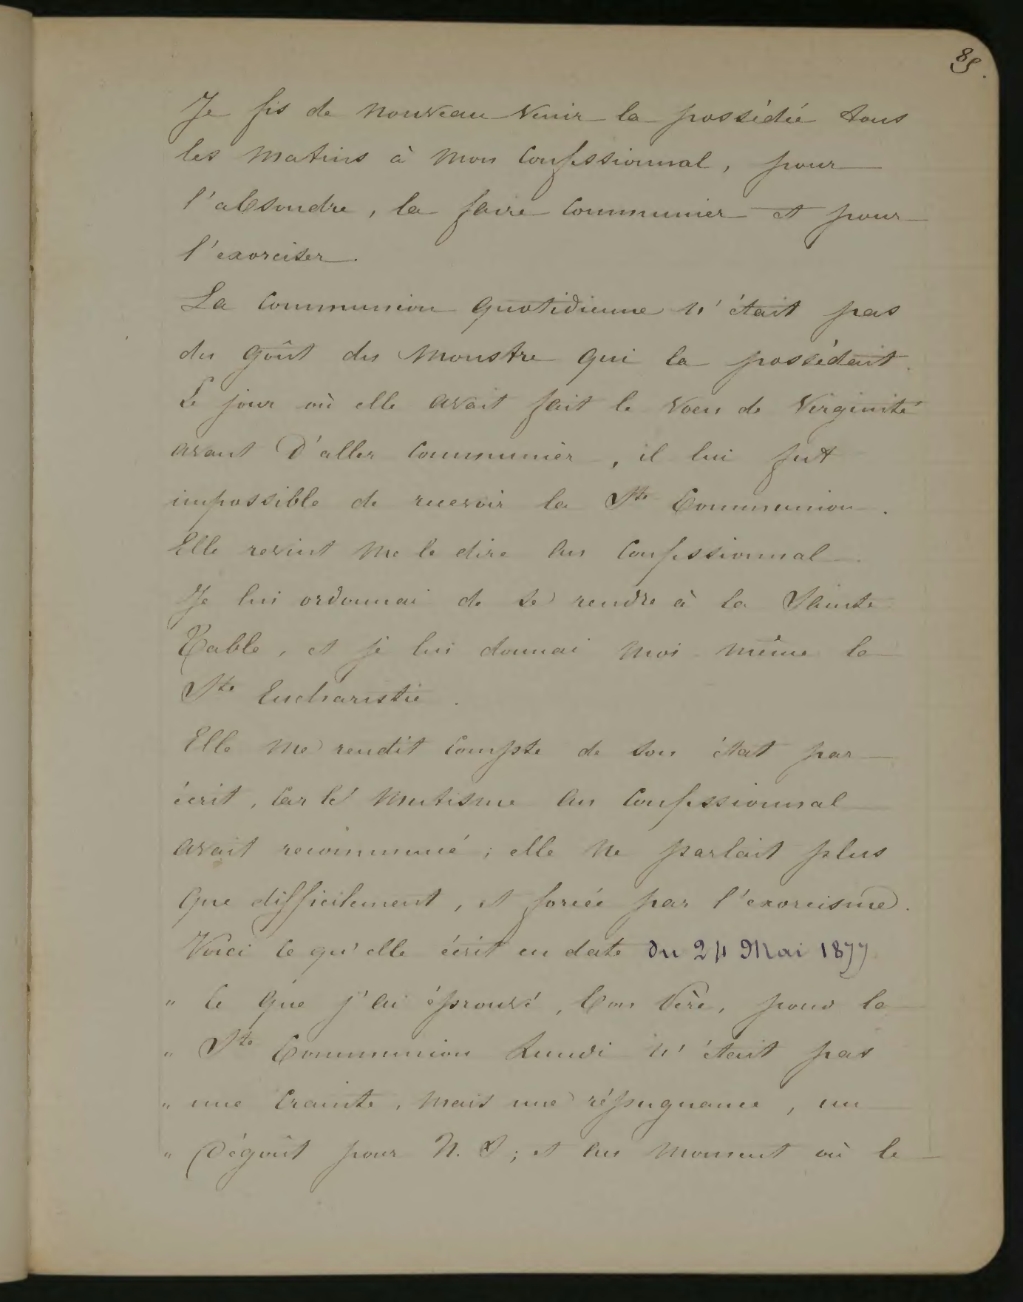 85.
Je fis de nouveau venir la possédée tous
les matins à mon confessionnal, pour
l'absoudre, la faire communier et pour
l'exorciser.
La communion quotidienne n'était pas
du goût du monstre qui la possédait.
Le jour où elle avait fait le vœu de virginité
avant d'aller communier, il lui fut
impossible de recevoir la Ste Communion.
Elle revint me le dire au confessionnal.
Je lui ordonnai de se rendre à la Sainte
Table, et je lui donnai moi-même la
Ste Eucharistie.
Elle me rendit compte de son état par
écrit, car le mutisme au confessionnal
avait recommencé ; elle ne parlait plus
que difficilement, et forcée par l'exorcisme.
Voici ce qu'elle écrit en date du 24 Mai 1877
" Ce que j'ai éprouvé, bon Père, pour la
" Ste Communion Lundi n'était pas
" une crainte, mais une répugnance, un
" Dégoût pour N. S ; et au moment où le